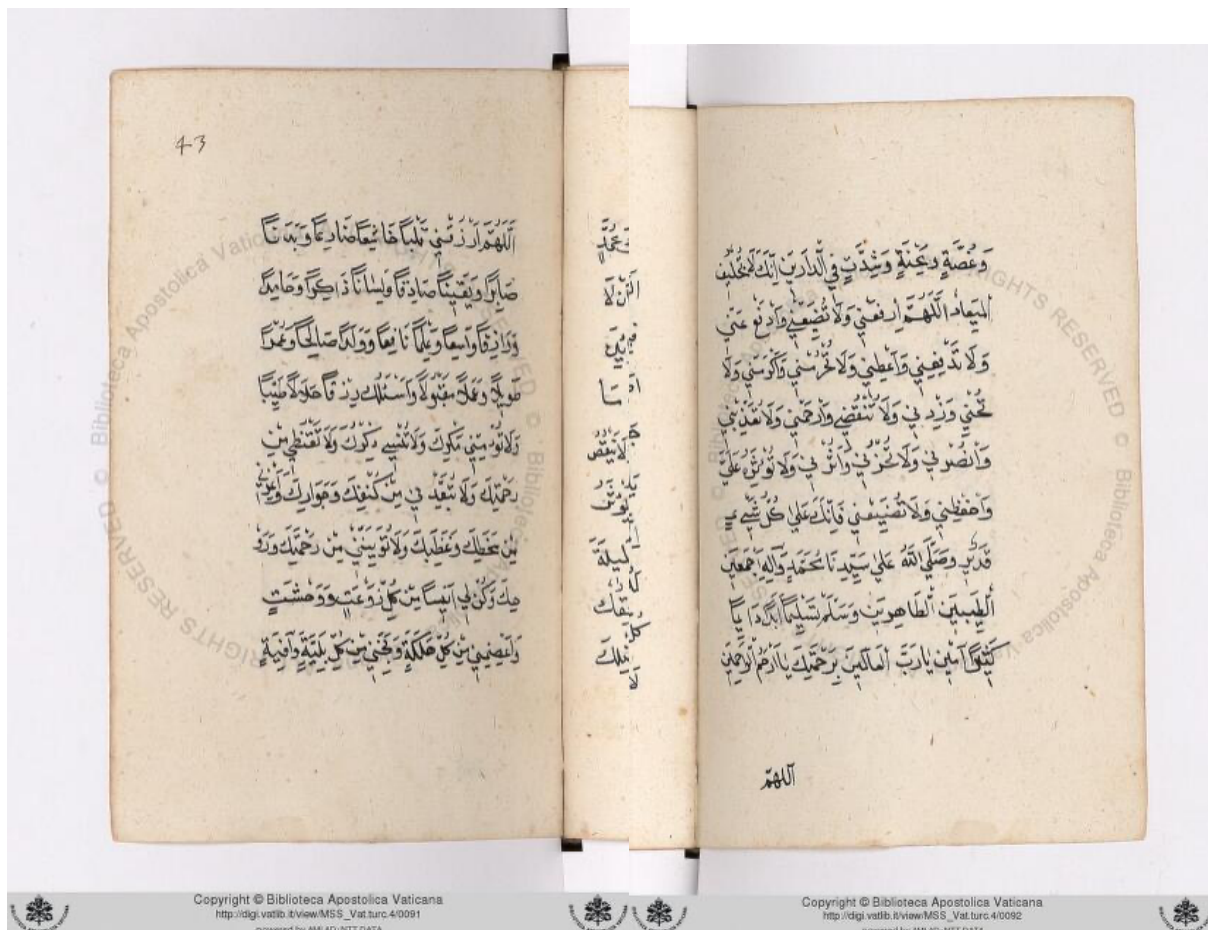 43
اَللّٰهُمَّ ارْزُقْنِي قَلْبًا خَاشِعًا ضَارِعًا وَبَدَنًا
صَابِرًا وَيَقِينًا صَادِقًا وَلِسَانًا ذَاكِرًا وَحَامِدًا
وَرِزْقًا وَاسِعًا وَعِلْمًا نَافِعًا وَوَلَدًا صَالِحًا وَعُمْرًا
طَوِيلًا وَعَمَلًا مَقْبُولًا وَاَسْئَلُكَ رِزْقًا حَلَالًا طَيِّبًا
وَلَا تُؤْمِنِّي مَكْرَكَ وَلَا تُنْسِنِي ذِكْرَكَ وَلَا تُقَنِّطْنِي مِنْ
رَحْمَتِكَ وَلَا تُبَعِّدْنِي مِنْ كَنَفِكَ وَجَوَارِكَ وَاَعِذْنِي
مِنْ سَخَطِكَ وَغَضَبِكَ وَلَا تُؤْيِسْنِي مِنْ رَحْمَتِكَ وَرَوْ
حِكَ وَكُنْ لِي اَنِيسًا مِنْ كُلِّ رَوْعَتٍ وَوَحْشَتٍ
وَاعْصِمْنِي مِنْ كُلِّ هَلَكَةٍ وَنَجِّنِي مِنْ كُلِّ بَلِيَّةٍ وَآفِيَةٍ
وَغُصَّةٍ وَمِحْنَةٍ وَشِدَّتٍ فِي الدَّارَيْنِ اِنَّكَ لَا تُخْلِفُ
الْمِيعَادَ اَللّٰهُمَّ ارْفَعْنِي وَلَا تَضَعْنِي وَادْفَعْ عَنِّي
وَلَا تَدْفَعْنِي وَاَعْطِنِي وَلَا تَحْرِمْنِي وَاَكْرِمْنِي وَلَا
تُهِنِّي وَزِدْنِي وَلَا تَنْقُصْنِي وَارْحَمْنِي وَلَا تُعَذِّبْنِي
وَانْصُرْنِي وَلَا تَخْذُلْنِي وَآثِرْنِي وَلَا تُؤْثِرْ عَلَيَّ
وَاحْفَظْنِي وَلَا تُضَيِّعْنِي فَاِنَّكَ عَلَىٰ كُلِّ شَيْءٍ
قَدِيرٌ وَصَلَّى اللّٰهُ عَلَىٰ سَيِّدِنَا مُحَمَّدٍ وَآلِهِ اَجْمَعِينَ
الطَّيِّبِينَ الطَّاهِرِينَ وَسَلَّمَ تَسْلِيمًا اَبَدًا دَائِمًا
كَثِيرًا آمِينَ يَا رَبَّ الْعَالَمِينَ بِرَحْمَتِكَ يَا اَرْحَمَ الرَّاحِمِينَ
اَللّٰهُمَّ
Copyright © Biblioteca Apostolica Vaticana
http://digi.vatlib.it/view/MSS_Vat.turc.4/0091
Copyright © Biblioteca Apostolica Vaticana
http://digi.vatlib.it/view/MSS_Vat.turc.4/0092